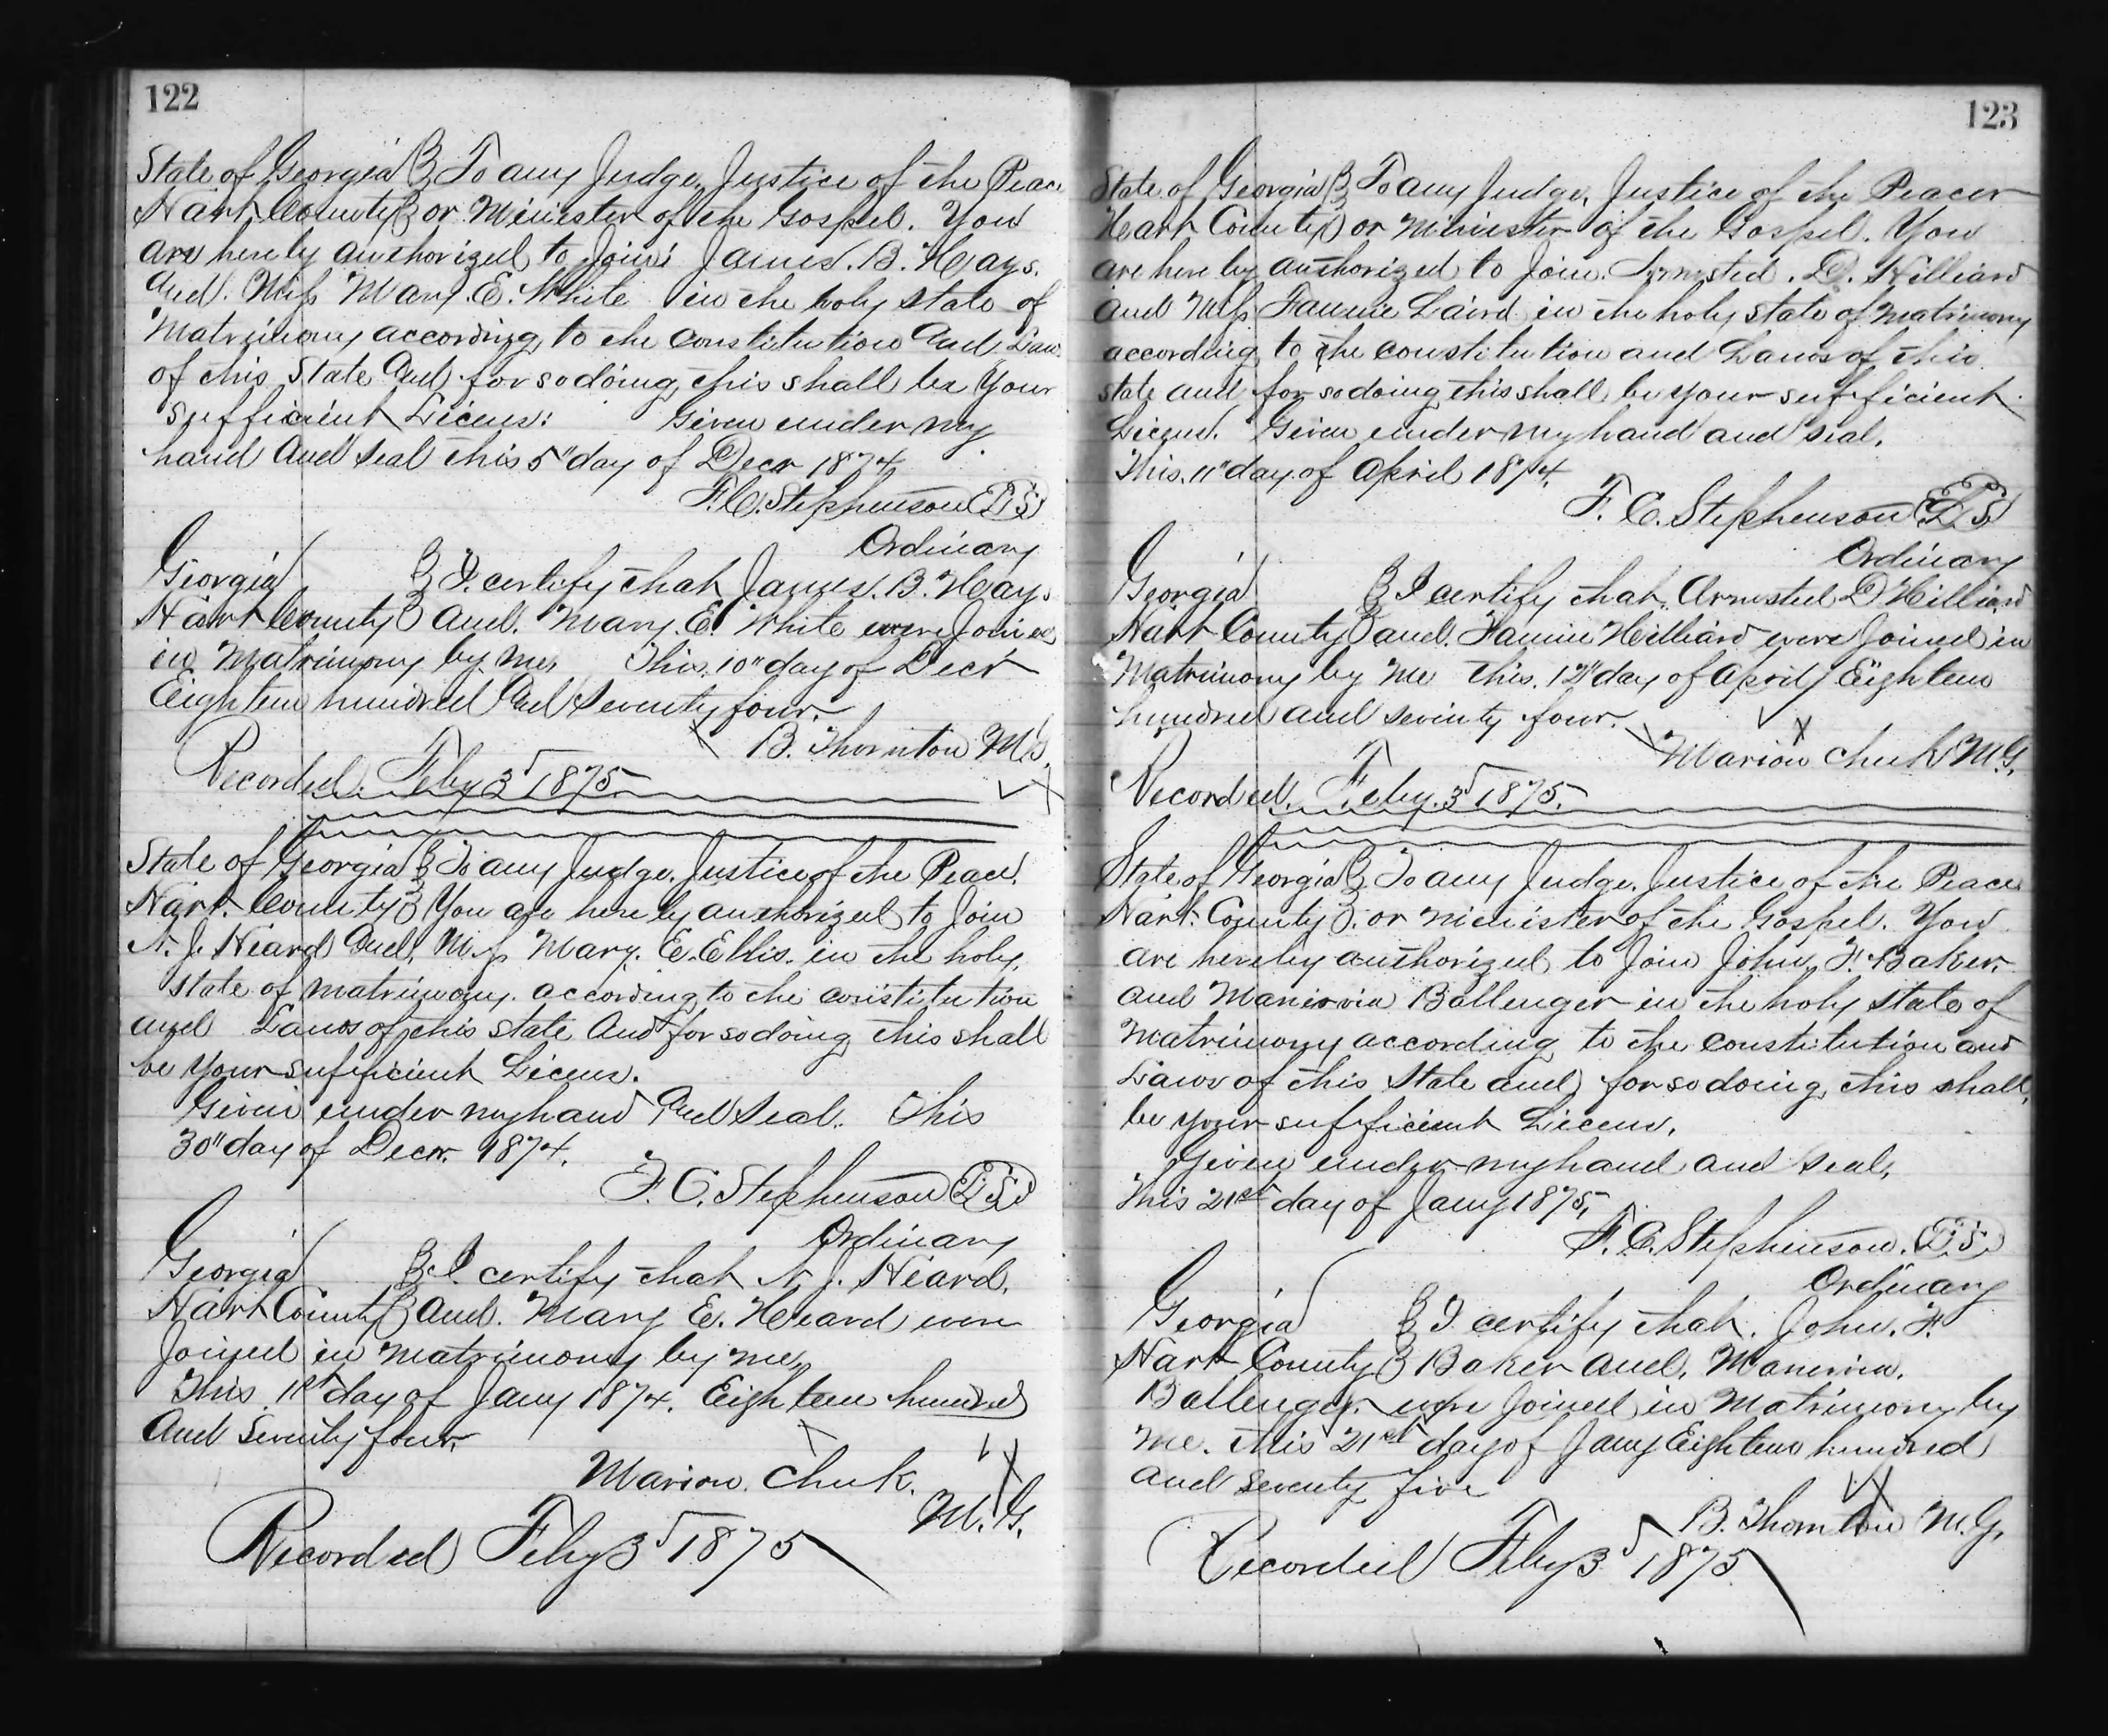 122
State of Georgia } To any Judge, Justice of the Peace
Hart County } or Minister of the Gospel. You
are hereby authorized to Join James. B. Hays.
And. Miss Mary. E. White in the holy state of
Matrimony according to the constitution And Laws
of this State And for so doing this shall be Your
sufficient Licens: Given under my
hand And seal this 5" day of Decr 1874
F. C. Stephenson L.S.
Ordinary
Georgia } I certify that James. B. Hays
Hart County } And. Mary. E. White were Joined
in Matrimony by me, This. 10" day of Decr
Eighteen hundred And Seventy four.
B. Thornton M.G.
Recorded. Feby 3d 1875
State of Georgia } To any Judge, Justice of the Peace.
Hart. County } You are hereby authorized to Join
N. J. Heard And, Miss Mary. E. Ellis. in the holy,
state of matrimony. according to the constitution
and Laws of this state And for so doing this shall
be Your sufficient Licens.
Given under my hand And Seal. This
30" day of Decr. 1874.
F. C. Stephenson L.S.
Ordinary
Georgia } I certify that N. J. Heard.
Hart County } And. Mary E. Heard were
Joined in Matrimony by me,
This 1st day of Jany 1874. Eighteen hundred
And Seventy four.
Marion. Chuk.
M. G.
Recorded Feby 3d 1875
123
State of Georgia } To any Judge, Justice of the Peace
Hart County } or Minister of the Gospel. You
are hereby authorized to Join. Armsted. D. Hilliard
and Miss Fannie Laird in the holy state of matrimony
according to the constitution and Laws of this
state and for so doing this shall be your sufficient
Licens. Given under my hand and seal.
This. 11" day of April 1874.
F. C. Stephenson L.S.
Ordinary
Georgia } I certify that. Armsted D Hilliard
Hart County } and. Fannie Hilliard were Joined in
Matrimony by Me This. 12" day of April Eighteen
hundred and seventy four.
Marion Chuk M.G.
Recorded. Feby. 3d 1875.
State of Georgia } To any Judge. Justice of the Peace
Hart. County } or minister of the Gospel. You
are hereby authorized to Join John. F. Baker.
and Manirvia Ballenger in the holy state of
Matrimony according to the constitution and
Laws of this State and for so doing this shall,
be your sufficient Licens.
Given under my hand and seal,
This 21st day of Jany 1875,
F. C. Stephenson. L.S.
Ordinary
Georgia } I certify that. John. F.
Hart County } Baker and, Manirvia.
Ballenger. were Joined in Matrimony by
me. this 21st day of Jany Eighteen hundred
and seventy five
B. Thornton M.G.
Recorded Feby 3d 1875